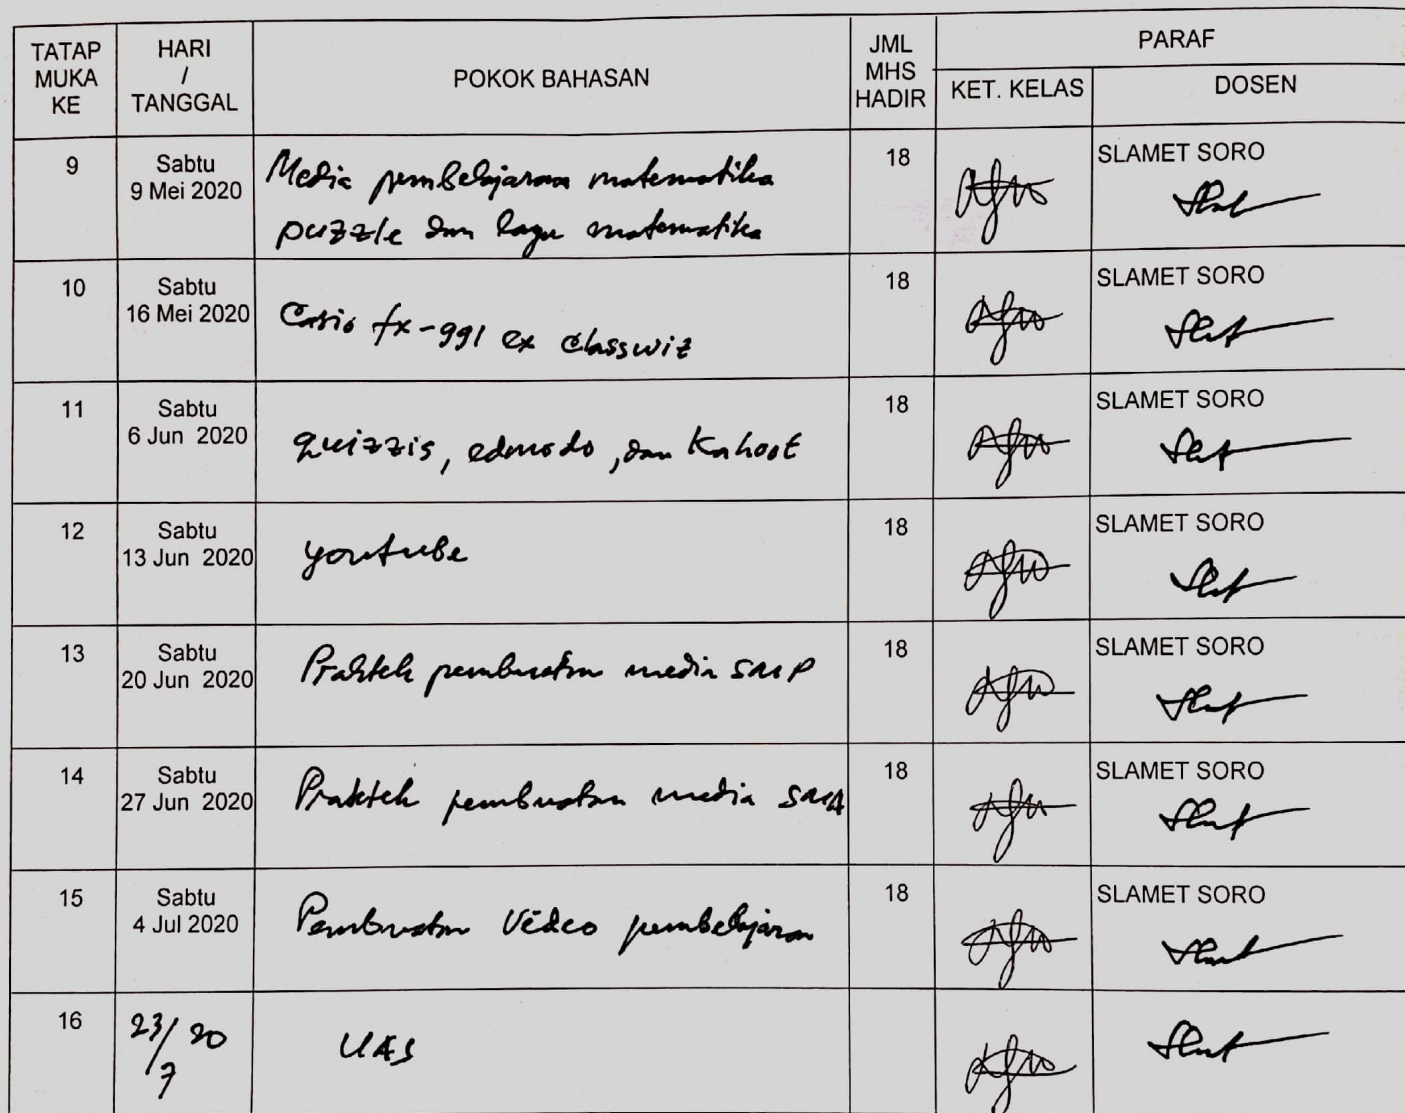 TATAP
MUKA
KE
HARI
/
TANGGAL
POKOK BAHASAN
JML
MHS
HADIR
PARAF
KET. KELAS
DOSEN
9
Sabtu
9 Mei 2020
Media pembelajaran matematika
puzzle dan lagu matematika
18
SLAMET SORO
10
Sabtu
16 Mei 2020
Casio fx-991 ex classwiz
18
SLAMET SORO
11
Sabtu
6 Jun 2020
quizzis, edmodo, dan Kahoot
18
SLAMET SORO
12
Sabtu
13 Jun 2020
youtube
18
SLAMET SORO
13
Sabtu
20 Jun 2020
Praktek pembuatan media SMP
18
SLAMET SORO
14
Sabtu
27 Jun 2020
Praktek pembuatan media SMA
18
SLAMET SORO
15
Sabtu
4 Jul 2020
Pembuatan Video pembelajaran
18
SLAMET SORO
16
23/7 20
UAS